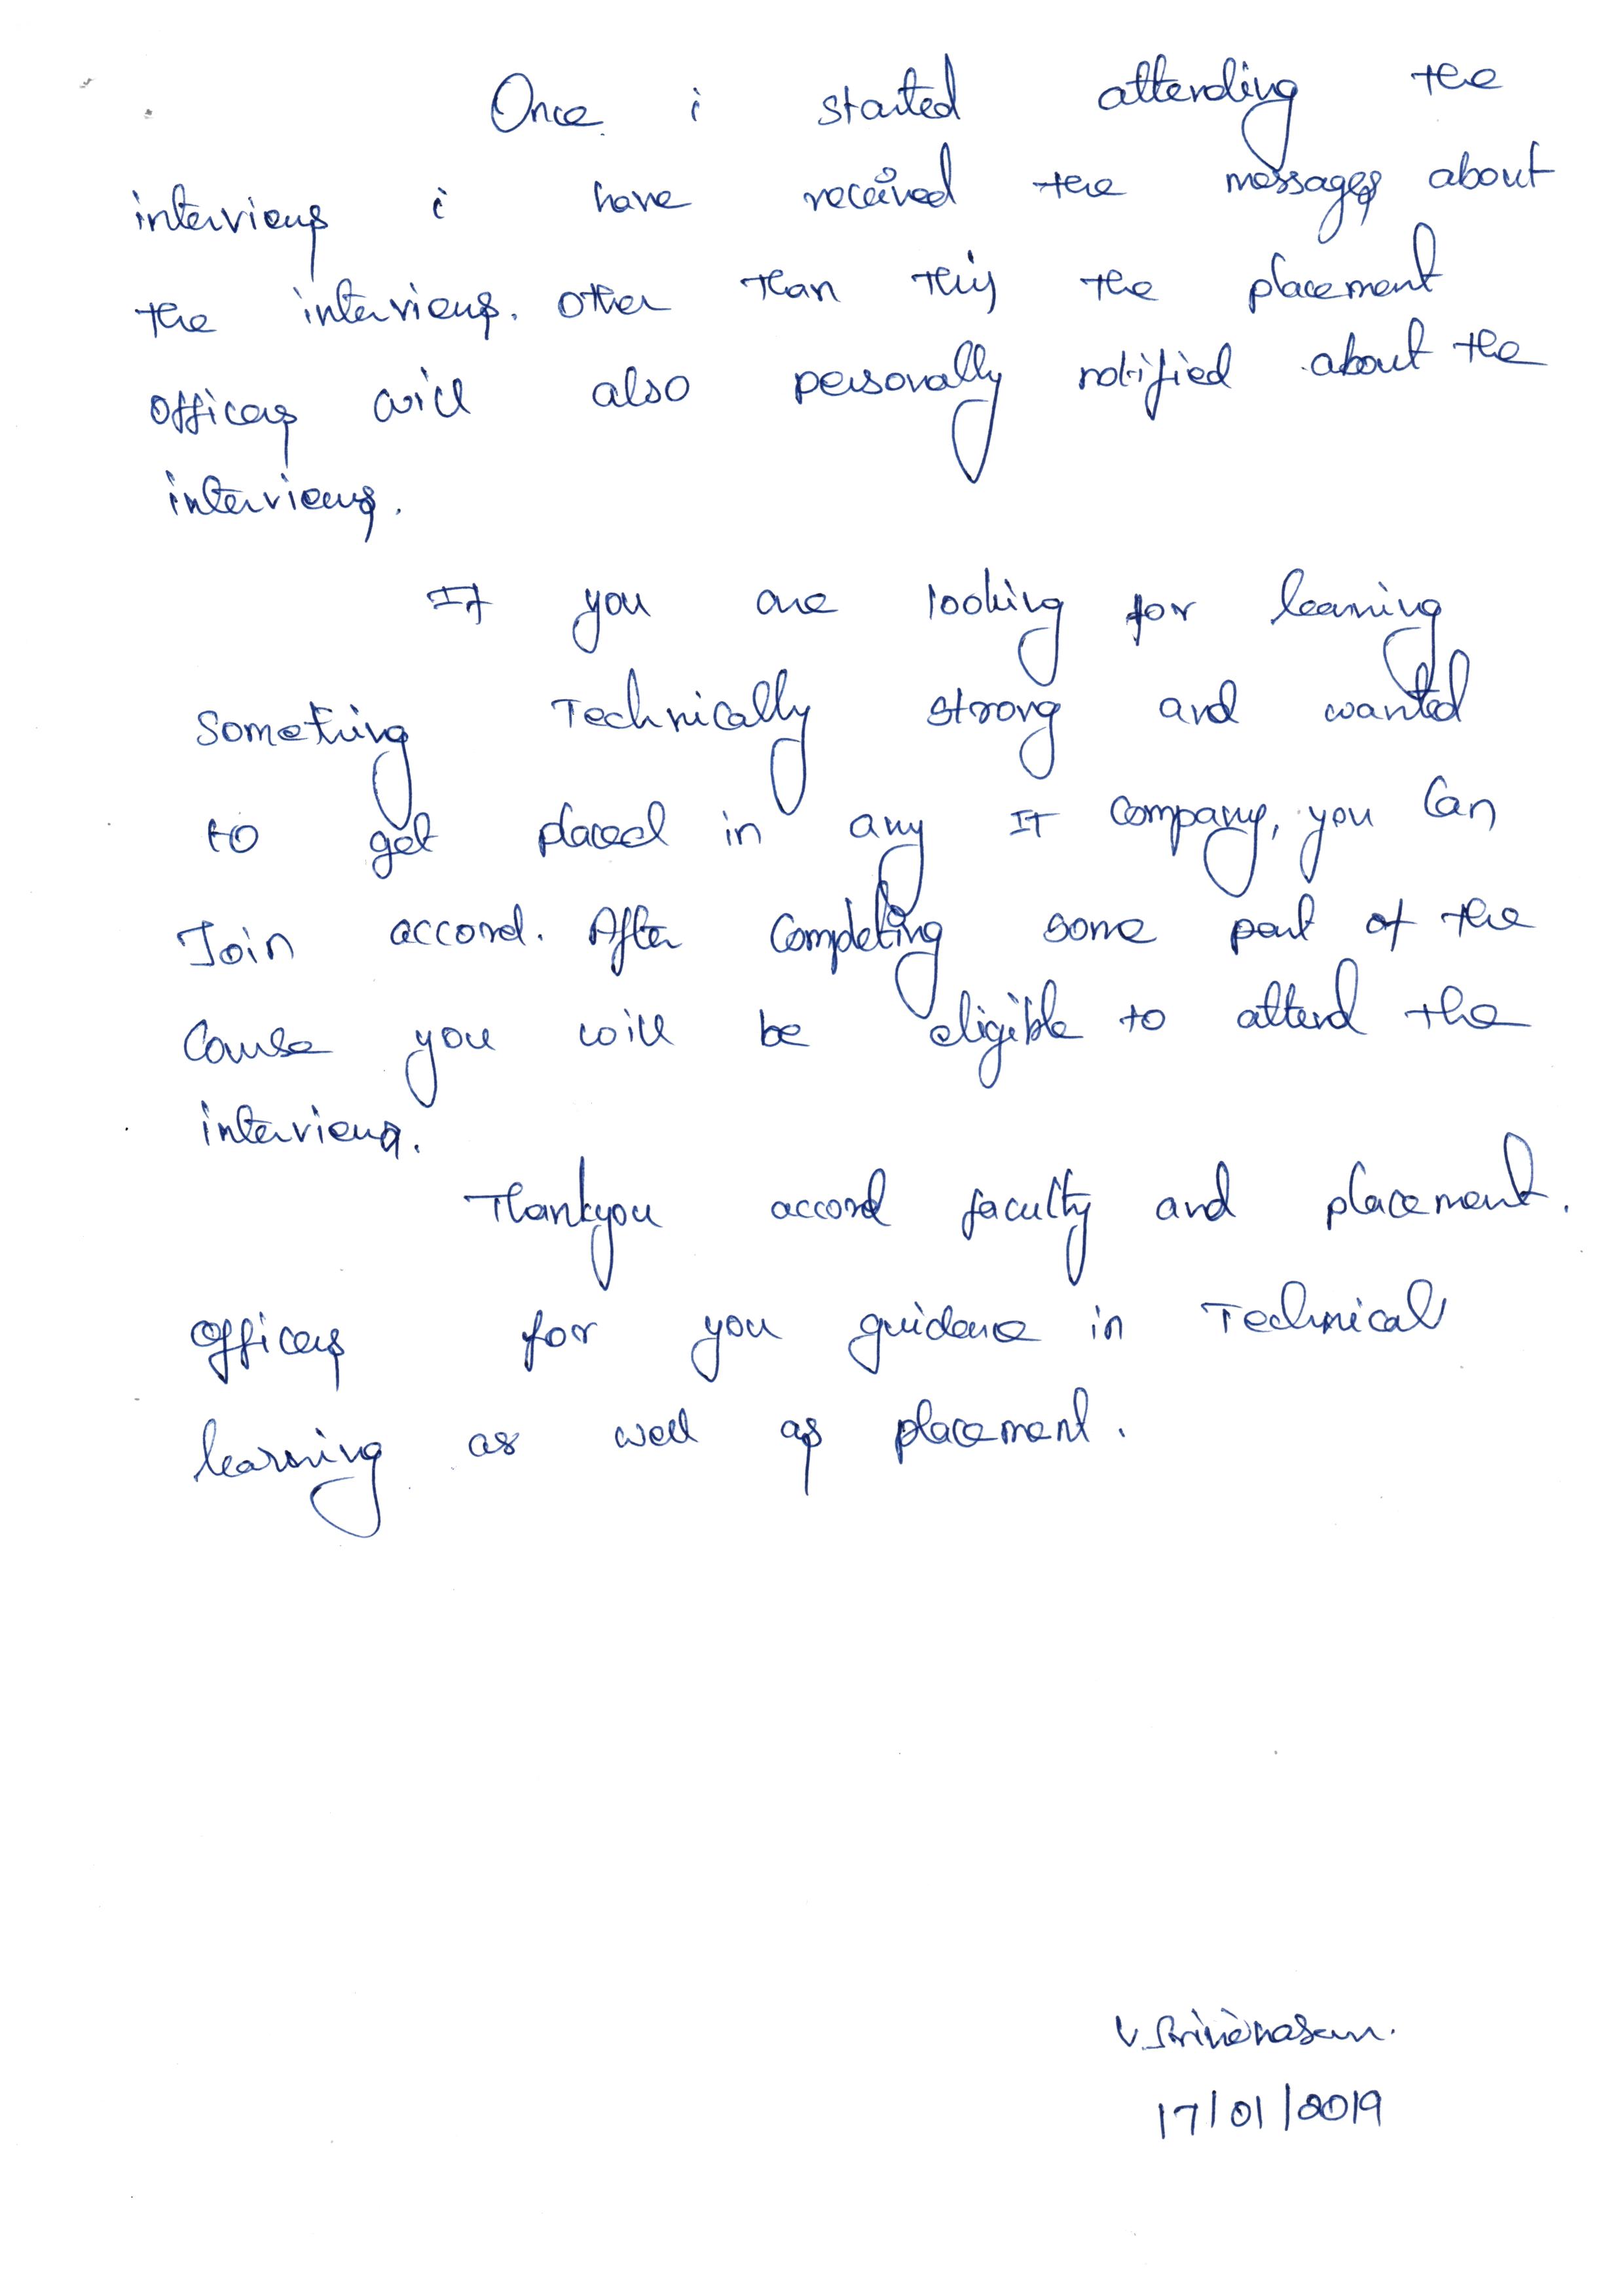 Once i started attending the
interviews i have received the messages about
the interviews. Other than this the placement
officers will also personally notified about the
interviews.
If you are looking for learning
Something Technically strong and wanted
to get placed in any IT company, you Can
Join accord. After Completing some part of the
Course you will be eligible to attend the
interviews.
Thankyou accord faculty and placement.
officers for you guidance in Technical
learning as well as placement.
V. Srinivasan.
17/01/2019